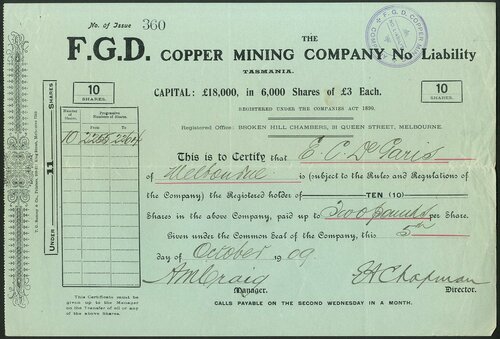 No. of Issue 360
THE
F.G.D. COPPER MINING COMPANY No Liability
TASMANIA.
CAPITAL: £18,000, in 6,000 Shares of £3 Each.
10 SHARES.
10 SHARES.
REGISTERED UNDER THE COMPANIES ACT 1890.
Registered Office: BROKEN HILL CHAMBERS, 31 QUEEN STREET, MELBOURNE.
UNDER 11 SHARES
Number of Shares.
Progressive Numbers of Shares.
From To
10
This is to Certify that E. C. De Garis
of Melbourne is (subject to the Rules and Regulations
of the Company) the Registered holder of TEN (10)
Shares in the above Company, paid up to Two pounds per Share.
Given under the Common Seal of the Company, this 5th
day of October 1909
A M Craig
E A Chapman
Manager.
Director.
This Certificate must be
given up to the Manager
on the Transfer of all or any
of the above Shares.
CALLS PAYABLE ON THE SECOND WEDNESDAY IN A MONTH.